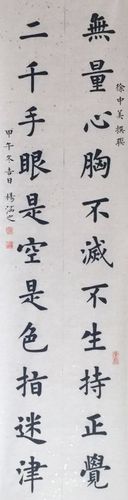 徐中美撰聯
無量心胸不滅不生持正覺
二千手眼是空是色指迷津
甲午冬吉日楊